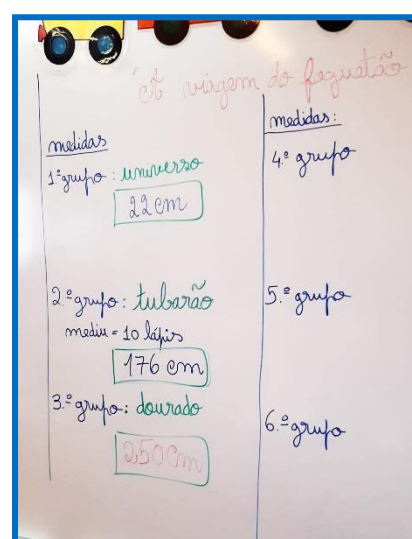 A viagem do foguetão
medidas
1.º grupo: universo
22 cm
2.º grupo: tubarão
mediu = 10 lápis
176 cm
3.º grupo: dourado
250 cm
medidas:
4.º grupo
5.º grupo
6.º grupo